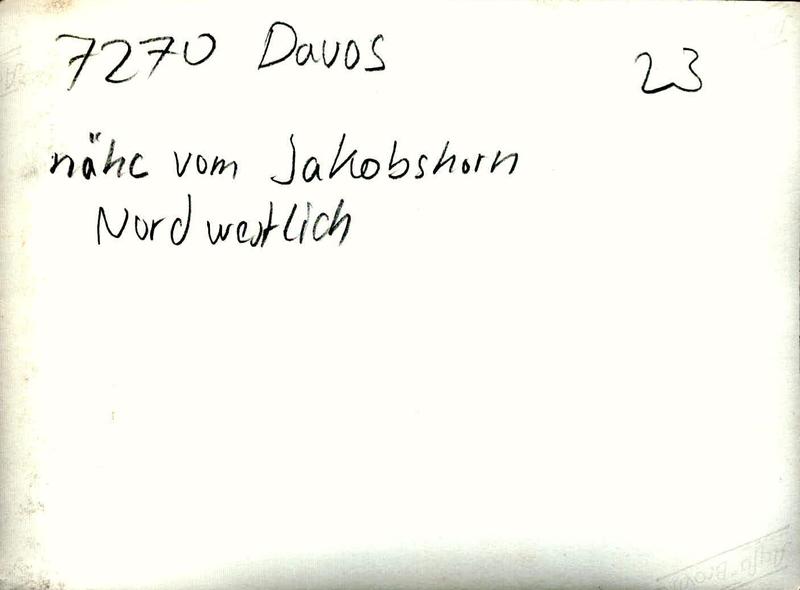 7270 Davos 23
nähe vom Jakobshorn
Nordwestlich